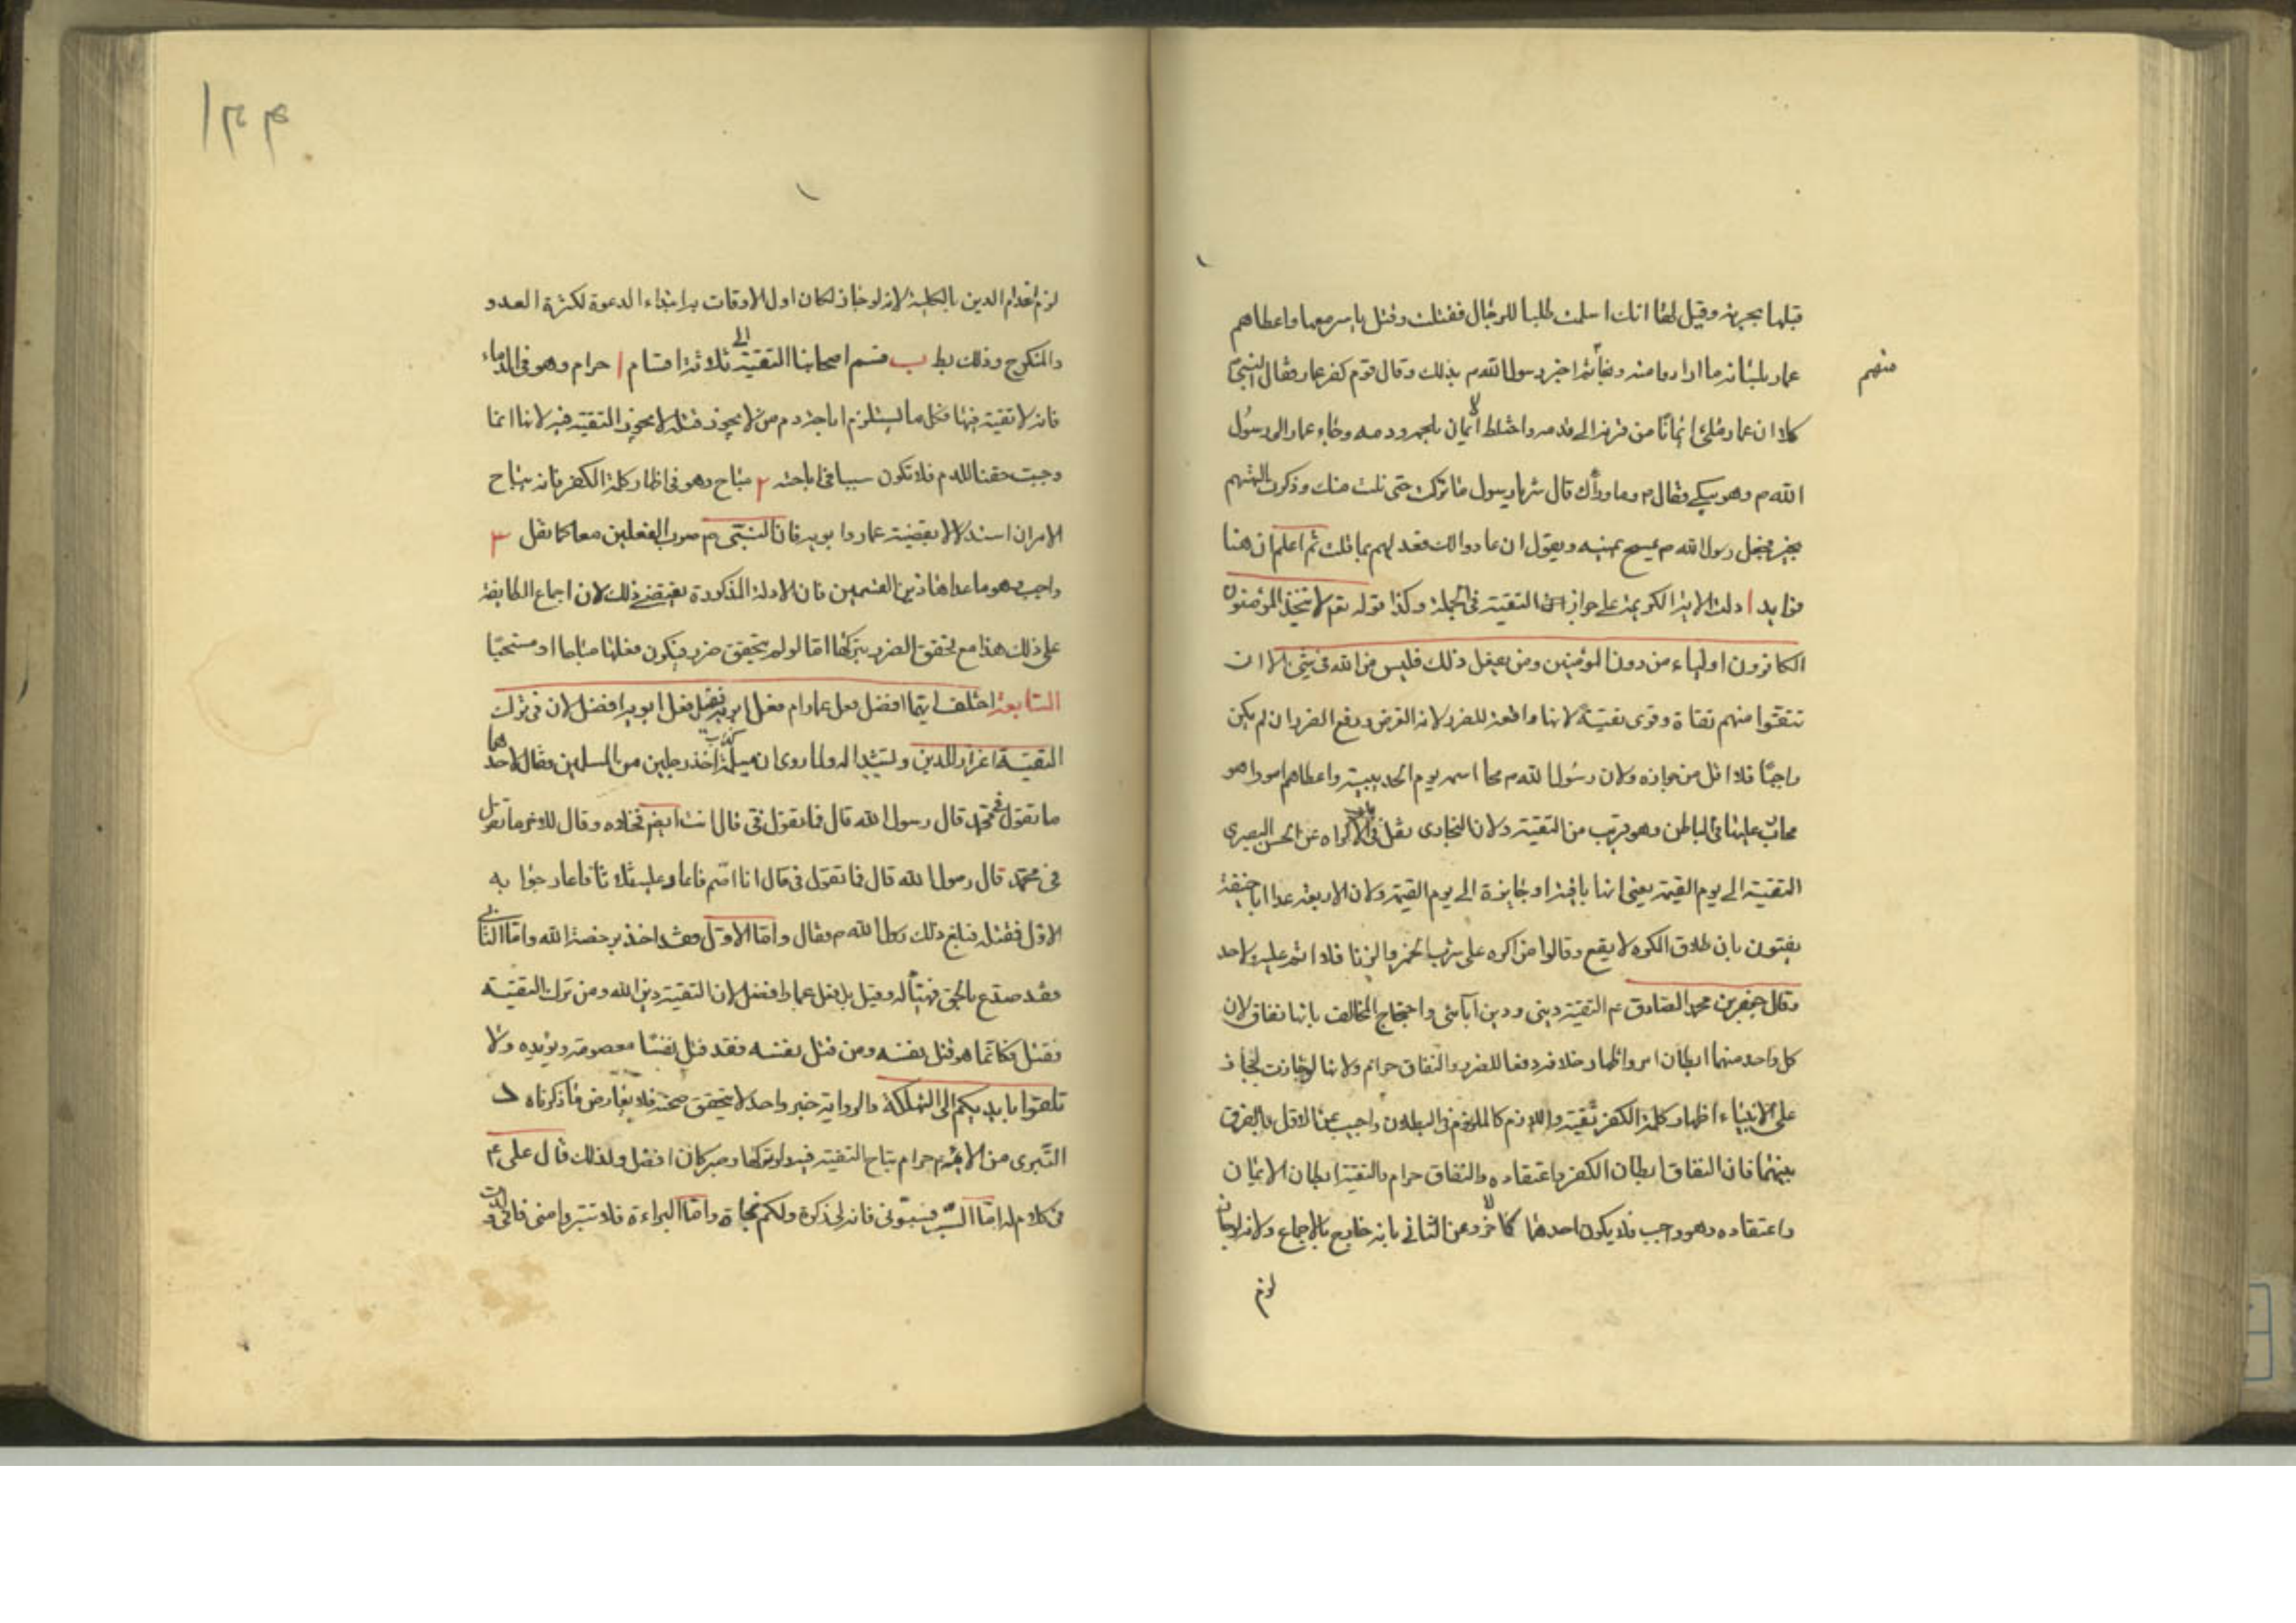 قبلها بحربة وقيل لها انك اسلمت طلبا للرجال فقتلت وقتل ياسر معها واعطاهم
عمار بلسانه ما ارادوا منه ونجا ثم اخبر رسول الله م بذلك وقال قوم كفر عمار فقال النبي
منهم
كلا ان عمار ملئ ايمانا من قرنه الى قدمه واختلط الايمان بلحمه ودمه وجاء عمار الى رسول
الله م وهو يبكي فقال م وما وراك قال شر يا رسول ما تركت حتى نلت منك وذكرت الهتهم
بخير فجعل رسول الله م يمسح عينيه ويقول ان عادوا لك فعد لهم بما قلت ثم اعلم ان هنا
فوايد ا دلت الاية الكريمة على جواز التقية في الجملة وكذا قوله تعم لا يتخذ المؤمنون
الكافرون اولياء من دون المؤمنين ومن يفعل ذلك فليس من الله في شئ الا ان
تتقوا منهم تقاة وقرى تقية لانها دافعة للضرر لانه الفرض ودفع الضرر ان لم يكن
واجبا فلا اقل من جوازه ولان رسول الله م محا اسمه يوم الحديبية واعطاهم امورا هو
محارب عليها في الباطن وهو قريب من التقية ولان البخاري نقل في باب الاكراه عن الحسن البصري
التقية الى يوم القيمة يعني انها باقية او جايزة الى يوم القيمة ولان الاربعة عدا ابا حنيفة
يفتون بان طلاق المكره لا يقع وقالوا من اكره على شرب الخمر والزنا فلا اثم عليه ولا حد
وقال جعفر بن محمد الصادق ع التقية ديني ودين آبائي واحتجاج المخالف بانها نفاق لان
كل واحد منهما ابطان امر واظهار خلافه دفعا للضرر والنفاق حرام ولانها لو جازت لجاز
على الانبياء اظهار كلمة الكفر تقية واللازم كالملزوم في البطلان واجيب عن الاول بالفرق
بينهما فان النفاق ابطان الكفر واعتقاده والنفاق حرام والتقية ابطان الايمان
واعتقاده وهو واجب فلا يكون احدهما كالاخر وعن الثاني بانه خارج بالاجماع ولانه لو جاز
لزم
١٣٩
لزم انعدام الدين بالكلية لانه لو جاز لكان اول الاوقات به ابتداء الدعوة لكثرة العدو
والمنكرح وذلك بط ب قسم اصحابنا التقية الى ثلاثة اقسام ا حرام وهو في الدماء
فانه لا تقية فيها فكل ما يستلزم اباحة دم من لا يجوز قتله لا يجوز التقية فيه لانها انما
وجبت حقنا للدم فلا تكون سببا في اباحته ٢ مباح وهو في اظهار كلمة الكفر فانه يباح
الامران استدلالا بقضية عمار وابويه فان النبي م صوب الفعلين معا كما نقل ٣
واجب وهو ما عدا هاذين القسمين فان الادلة المذكورة يقتضي ذلك لان اجماع الطايفة
على ذلك هذا مع تحقق الضرر بتركها اما لو لم يتحقق ضرر فيكون فعلها مباحا او مستحبا
السابعة اختلف ايما افضل فعل عمار ام فعل ابويه فقيل فعل ابويه افضل لان في ترك
التقية اعزاز للدين وتشييدا له ولما روى ان مسيلمة كذاب اخذ رجلين من المسلمين فقال لاحدهما
ما تقول في محمد قال رسول الله قال فما تقول في قال انت ايضم فخلاه وقال للاخر ما تقول
في محمد قال رسول الله قال فما تقول في قال انا اصم فاعاد عليه ثلاثا فاعاد جوابه
الاول فقتله فبلغ ذلك رسول الله م فقال واما الاول فقد اخذ برخصة الله واما الثاني
فقد صدع بالحق فهنيأ له وقيل بل فعل عمار افضل لان التقية دين الله ومن ترك التقية
فقتل فكانما هو قتل نفسه ومن قتل نفسه فقد قتل نفسا معصومة ويؤيده ولا
تلقوا بايديكم الى التهلكة والرواية خبر واحد لا يتحقق صحته فلا يعارض ما ذكرناه د
التبري من الائمة م حرام يباح التقية فيه ولو تركها وصبر كان افضل ولذلك قال على ع
في كلام له اما السب فسبوني فانه لي ذكوة ولكم نجاة واما البراءة فلا تتبرءوا مني فاني ولدت